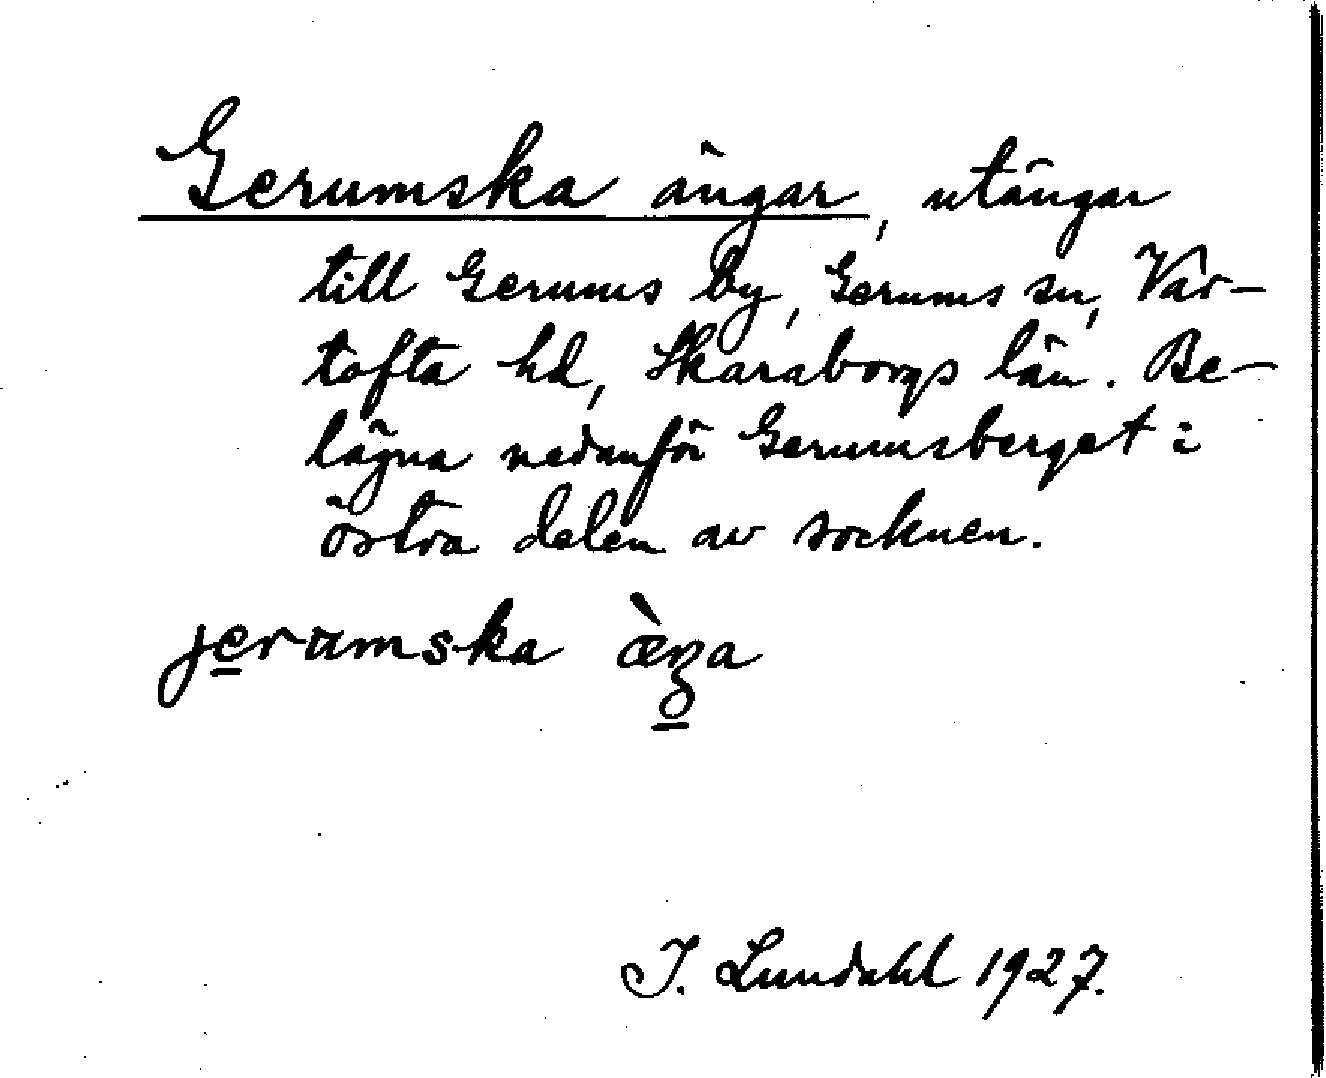 Gerumska ängar, utängar
till Gerums by, Gerums sn, Var-
tofta hd, Skaraborgs län. Be-
lägna nedanför Gerumsberget i
östra delen av socknen.
jerumska æ̀ŋa
I. Lundahl 1927.